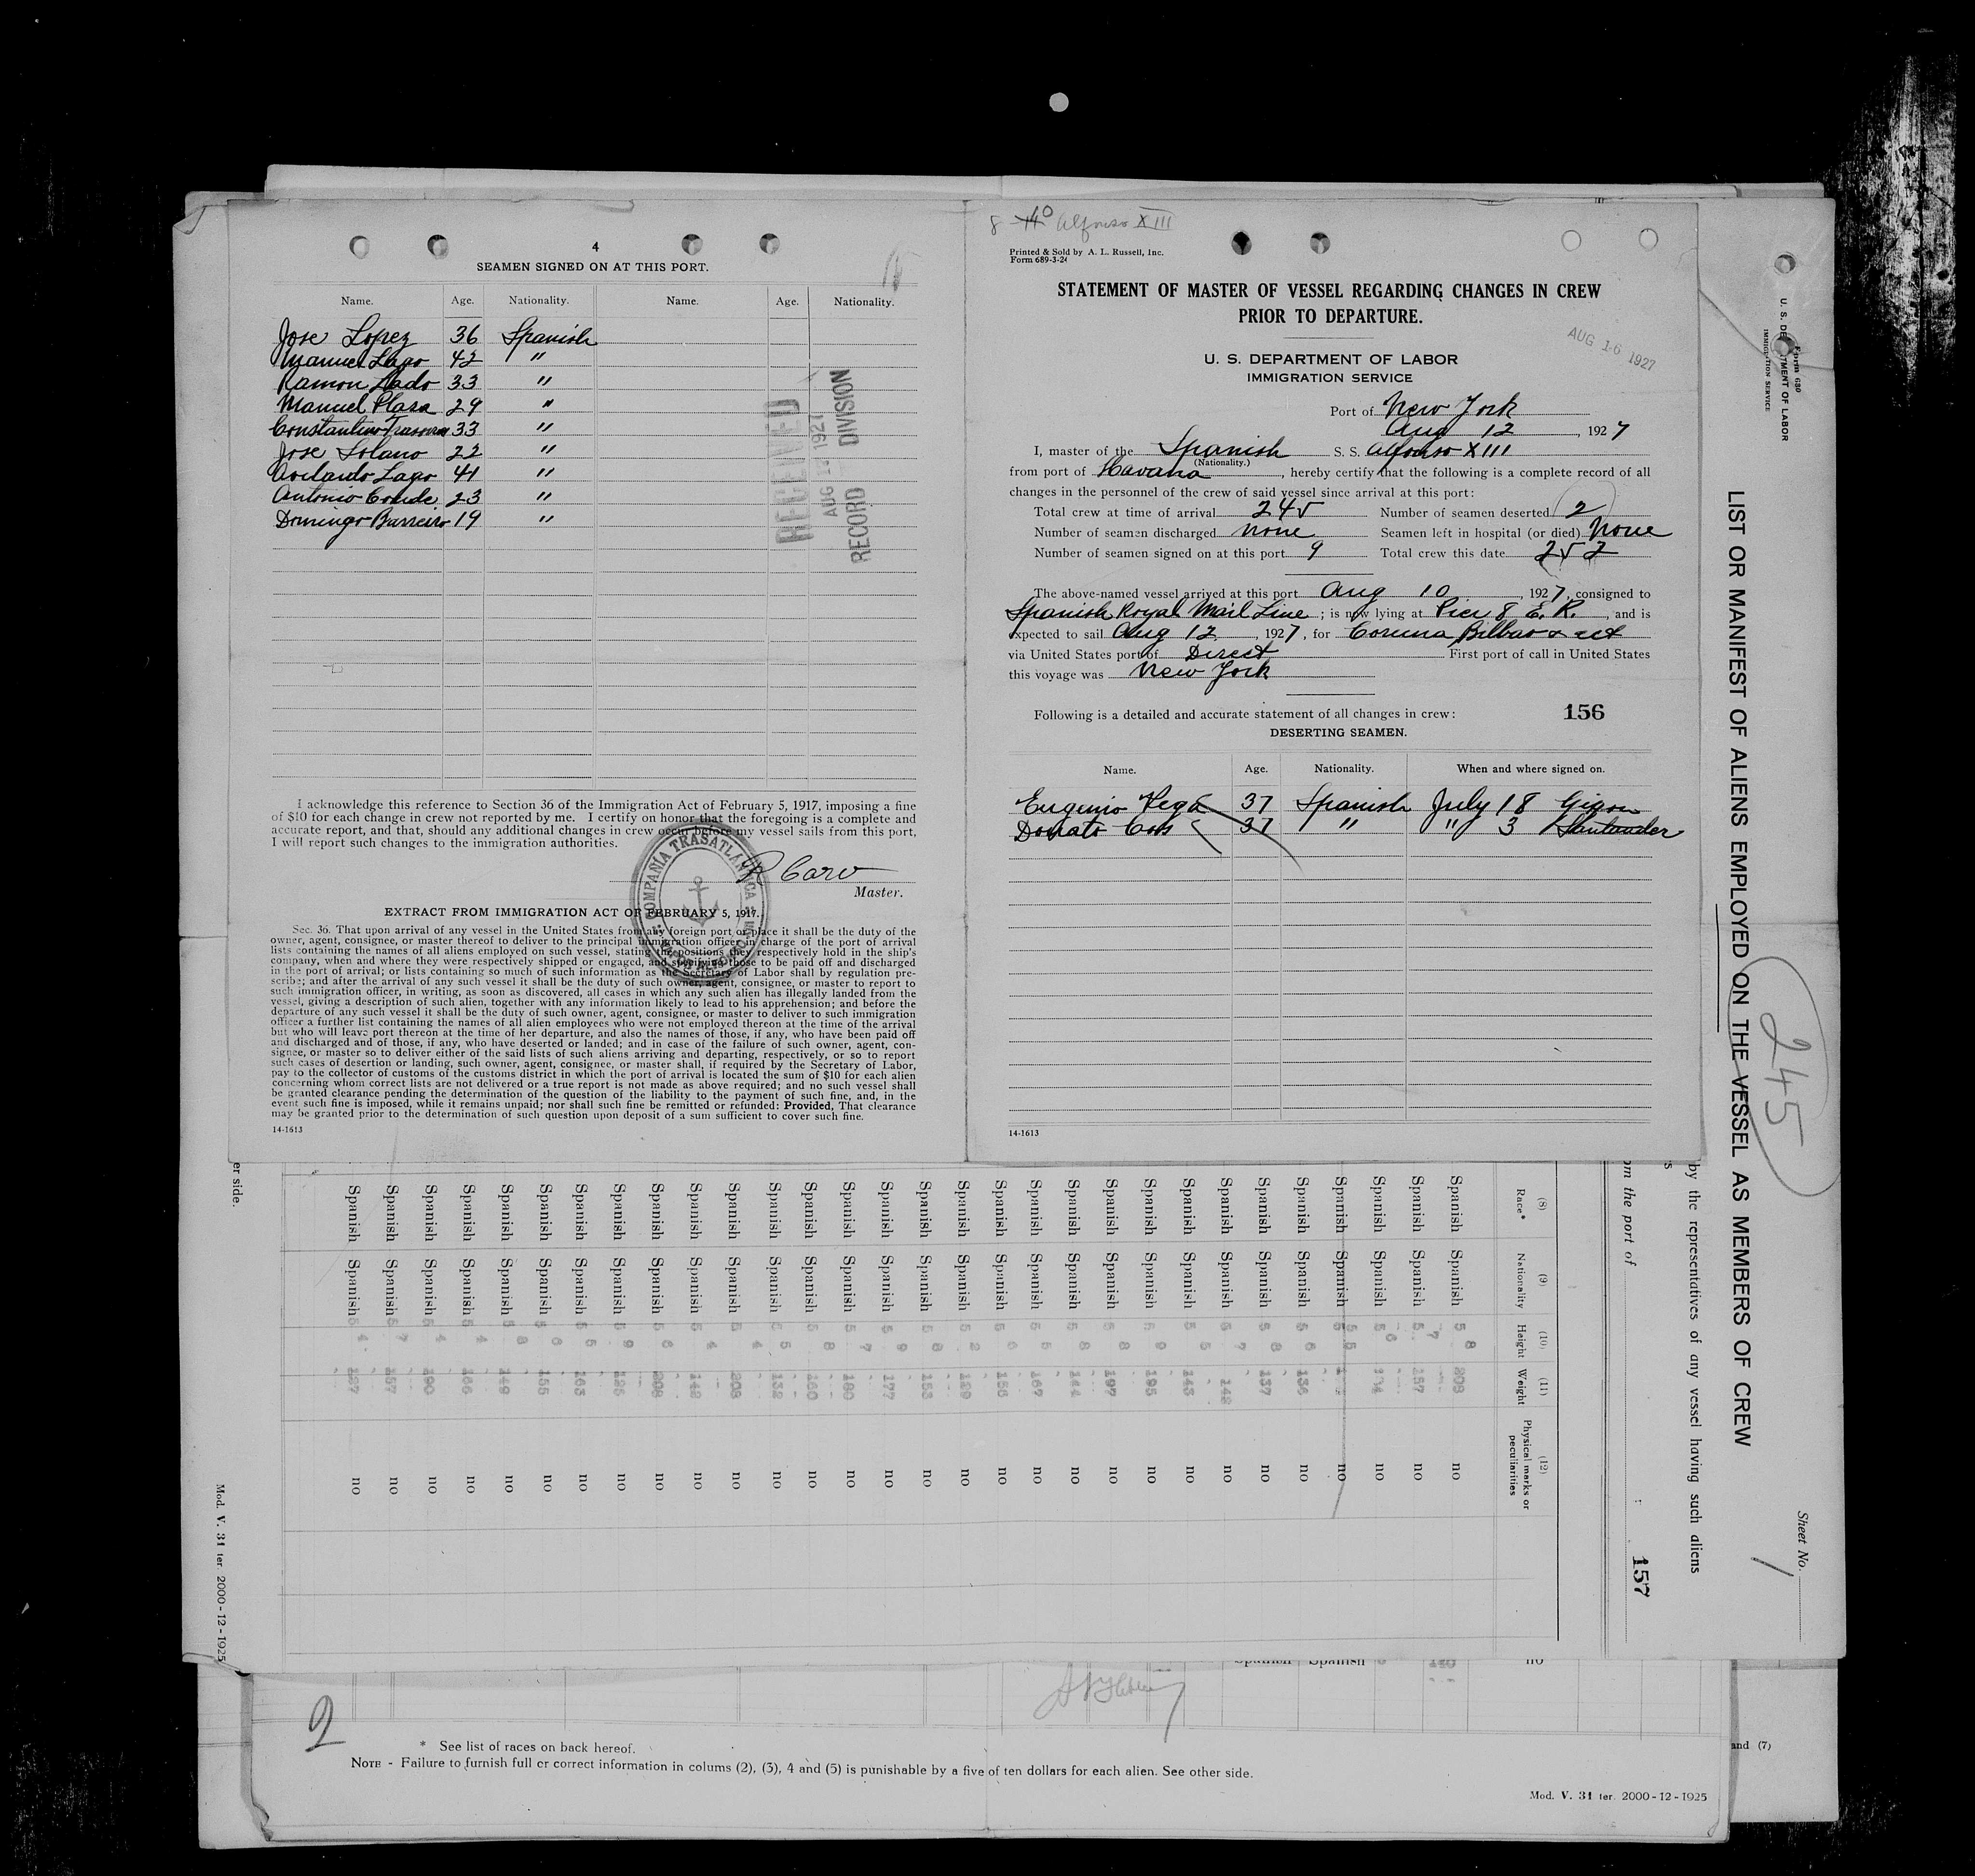 4
SEAMEN SIGNED ON AT THIS PORT.
Name. Age. Nationality. Name. Age. Nationality.
Jose Lopez 36 Spanish
Manuel Lago 42 "
Ramon Llado 33 "
Manuel Plasa 29 "
Constantino 33 "
Jose Solano 22 "
Lago 41 "
Antonio Conde 23 "
Domingo Barreiro 19 "
RECEIVED
AUG 1927
RECORD DIVISION
I acknowledge this reference to Section 36 of the Immigration Act of February 5, 1917, imposing a fine
of $10 for each change in crew not reported by me. I certify on honor that the foregoing is a complete and
accurate report, and that, should any additional changes in crew occur before my vessel sails from this port,
I will report such changes to the immigration authorities.
R Caro
Master.
COMPAÑIA TRASATLANTICA
EXTRACT FROM IMMIGRATION ACT OF FEBRUARY 5, 1917.
Sec. 36. That upon arrival of any vessel in the United States from any foreign port or place it shall be the duty of the
owner, agent, consignee, or master thereof to deliver to the principal immigration officer in charge of the port of arrival
lists containing the names of all aliens employed on such vessel, stating the positions they respectively hold in the ship's
company, when and where they were respectively shipped or engaged, and specifying those to be paid off and discharged
in the port of arrival; or lists containing so much of such information as the Secretary of Labor shall by regulation pre-
scribe; and after the arrival of any such vessel it shall be the duty of such owner, agent, consignee, or master to report to
such immigration officer, in writing, as soon as discovered, all cases in which any such alien has illegally landed from the
vessel, giving a description of such alien, together with any information likely to lead to his apprehension; and before the
departure of any such vessel it shall be the duty of such owner, agent, consignee, or master to deliver to such immigration
officer a further list containing the names of all alien employees who were not employed thereon at the time of the arrival
but who will leave port thereon at the time of her departure, and also the names of those, if any, who have been paid off
and discharged and of those, if any, who have deserted or landed; and in case of the failure of such owner, agent, con-
signee, or master so to deliver either of the said lists of such aliens arriving and departing, respectively, or so to report
such cases of desertion or landing, such owner, agent, consignee, or master shall, if required by the Secretary of Labor,
pay to the collector of customs of the customs district in which the port of arrival is located the sum of $10 for each alien
concerning whom correct lists are not delivered or a true report is not made as above required; and no such vessel shall
be granted clearance pending the determination of the question of the liability to the payment of such fine, and, in the
event such fine is imposed, while it remains unpaid; nor shall such fine be remitted or refunded: Provided, That clearance
may be granted prior to the determination of such question upon deposit of a sum sufficient to cover such fine.
14-1613
8 Alfonso XIII
Printed & Sold by A. L. Russell, Inc.
Form 689-3-24
STATEMENT OF MASTER OF VESSEL REGARDING CHANGES IN CREW
PRIOR TO DEPARTURE.
AUG 16 1927
U. S. DEPARTMENT OF LABOR
IMMIGRATION SERVICE
Port of New York
Aug 12, 1927
I, master of the Spanish S. S. Alfonso XIII
(Nationality.)
from port of Havana, hereby certify that the following is a complete record of all
changes in the personnel of the crew of said vessel since arrival at this port:
Total crew at time of arrival 245 Number of seamen deserted 2
Number of seamen discharged none Seamen left in hospital (or died) None
Number of seamen signed on at this port 9 Total crew this date 252
The above-named vessel arrived at this port Aug 10, 1927, consigned to
Spanish Royal Mail Line; is now lying at Pier 8 E. R., and is
expected to sail Aug 12, 1927, for Coruna Bilbao & ect
via United States port of Direct First port of call in United States
this voyage was New York
Following is a detailed and accurate statement of all changes in crew: 156
DESERTING SEAMEN.
Name. Age. Nationality. When and where signed on.
Eugenio Vega 37 Spanish July 18 Gijon
Donato Cos 37 " " 3 Santander
14-1613
Form 680
U. S. DEPARTMENT OF LABOR
IMMIGRATION SERVICE
LIST OR MANIFEST OF ALIENS EMPLOYED ON THE VESSEL AS MEMBERS OF CREW
245
Sheet No. 1
by the representatives of any vessel having such aliens
om the port of
157
(8) Race* (9) Nationality (10) Height (11) Weight (12) Physical marks or peculiarities
Spanish Spanish 5 8 208 no
Spanish Spanish 5 7 157 no
Spanish Spanish 5 6 134 no
Spanish Spanish 5 5 no
Spanish Spanish 5 6 136 no
Spanish Spanish 5 8 137 no
Spanish Spanish 5 7 142 no
Spanish Spanish 5 5 143 no
Spanish Spanish 5 9 195 no
Spanish Spanish 5 8 197 no
Spanish Spanish 5 8 144 no
Spanish Spanish 5 5 167 no
Spanish Spanish 5 6 156 no
Spanish Spanish 5 2 129 no
Spanish Spanish 5 8 153 no
Spanish Spanish 5 9 177 no
Spanish Spanish 5 7 180 no
Spanish Spanish 5 8 160 no
Spanish Spanish 5 132 no
Spanish Spanish 5 4 208 no
Spanish Spanish 5 4 142 no
Spanish Spanish 5 6 208 no
Spanish Spanish 5 9 126 no
Spanish Spanish 5 5 163 no
Spanish Spanish 5 6 155 no
Spanish Spanish 5 8 149 no
Spanish Spanish 5 4 166 no
Spanish Spanish 5 4 190 no
Spanish Spanish 5 7 157 no
Spanish Spanish 5 4 127 no
er side.
Mod. V. 31 ter. 2000-12-1925
Spanish Spanish 140 no
2
* See list of races on back hereof.
NOTE - Failure to furnish full or correct information in colums (2), (3), 4 and (5) is punishable by a five of ten dollars for each alien. See other side.
and (7)
Mod. V. 31 ter. 2000-12-1925